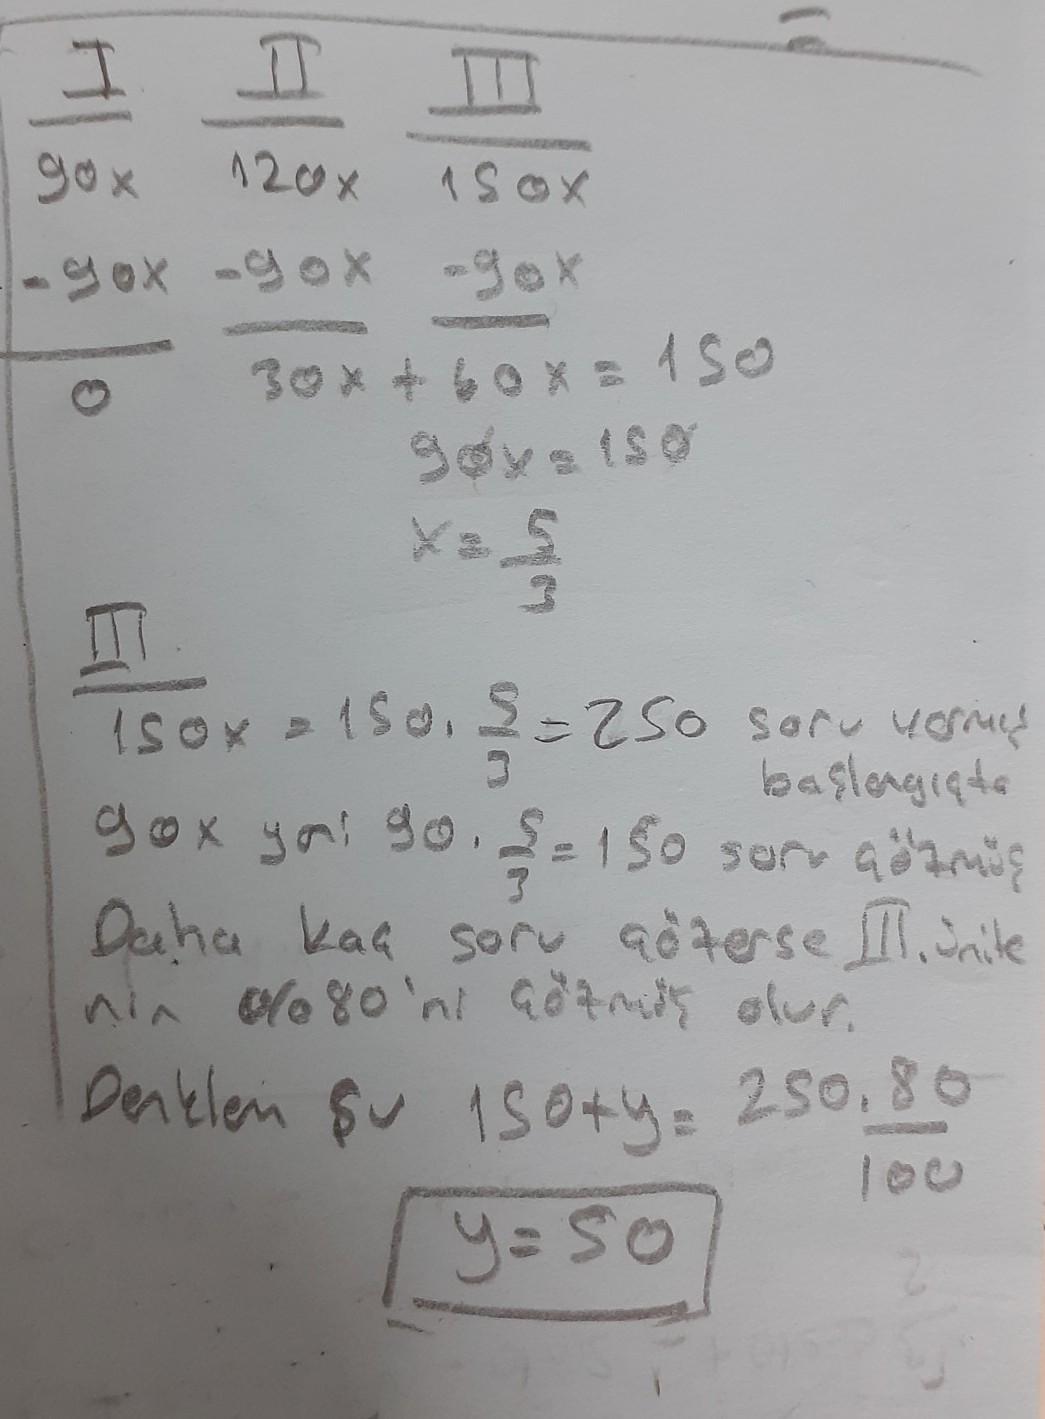 I II III
90x 120x 150x
-90x -90x -90x
0 30x + 60x = 150
90x = 150
x = 5/3
III
150x = 150 . 5/3 = 250 soru vermiş
başlangıçta
90x yani 90 . 5/3 = 150 soru çözmüş
Daha kaç soru çözerse III. ünite
nin %80'ni çözmüş olur.
Denklem şu 150+y = 250.80/100
y = 50